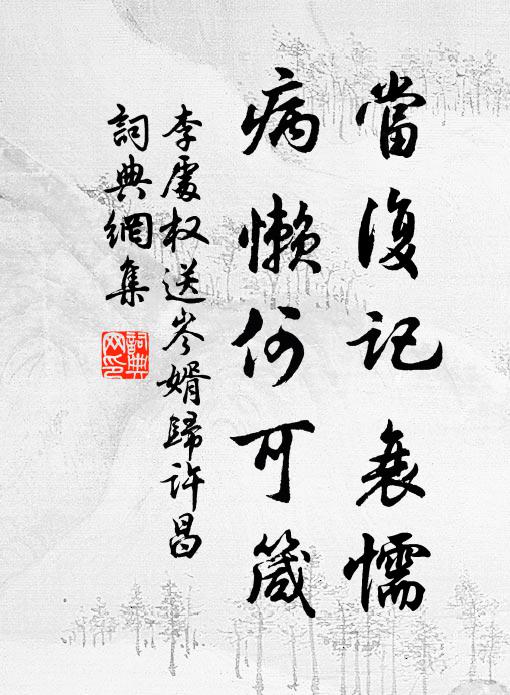 當復記衰懦
病懶何可箴
李處权送岑婿歸許昌
詞典網集
詞典網印